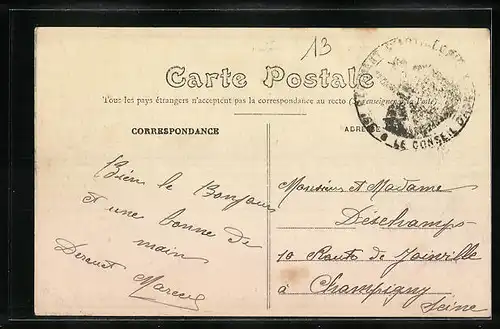 13
Carte Postale
Tous les pays étrangers n'acceptent pas la correspondance au recto (Se renseigner à la Poste)
CORRESPONDANCE
ADRESSE
LE CONSEIL D'AD
Bien le Bonjours
et une bonne de
main
Marcel
Monsieur et Madame
Deschamps
10 Route de Joinville
à Champigny
Seine